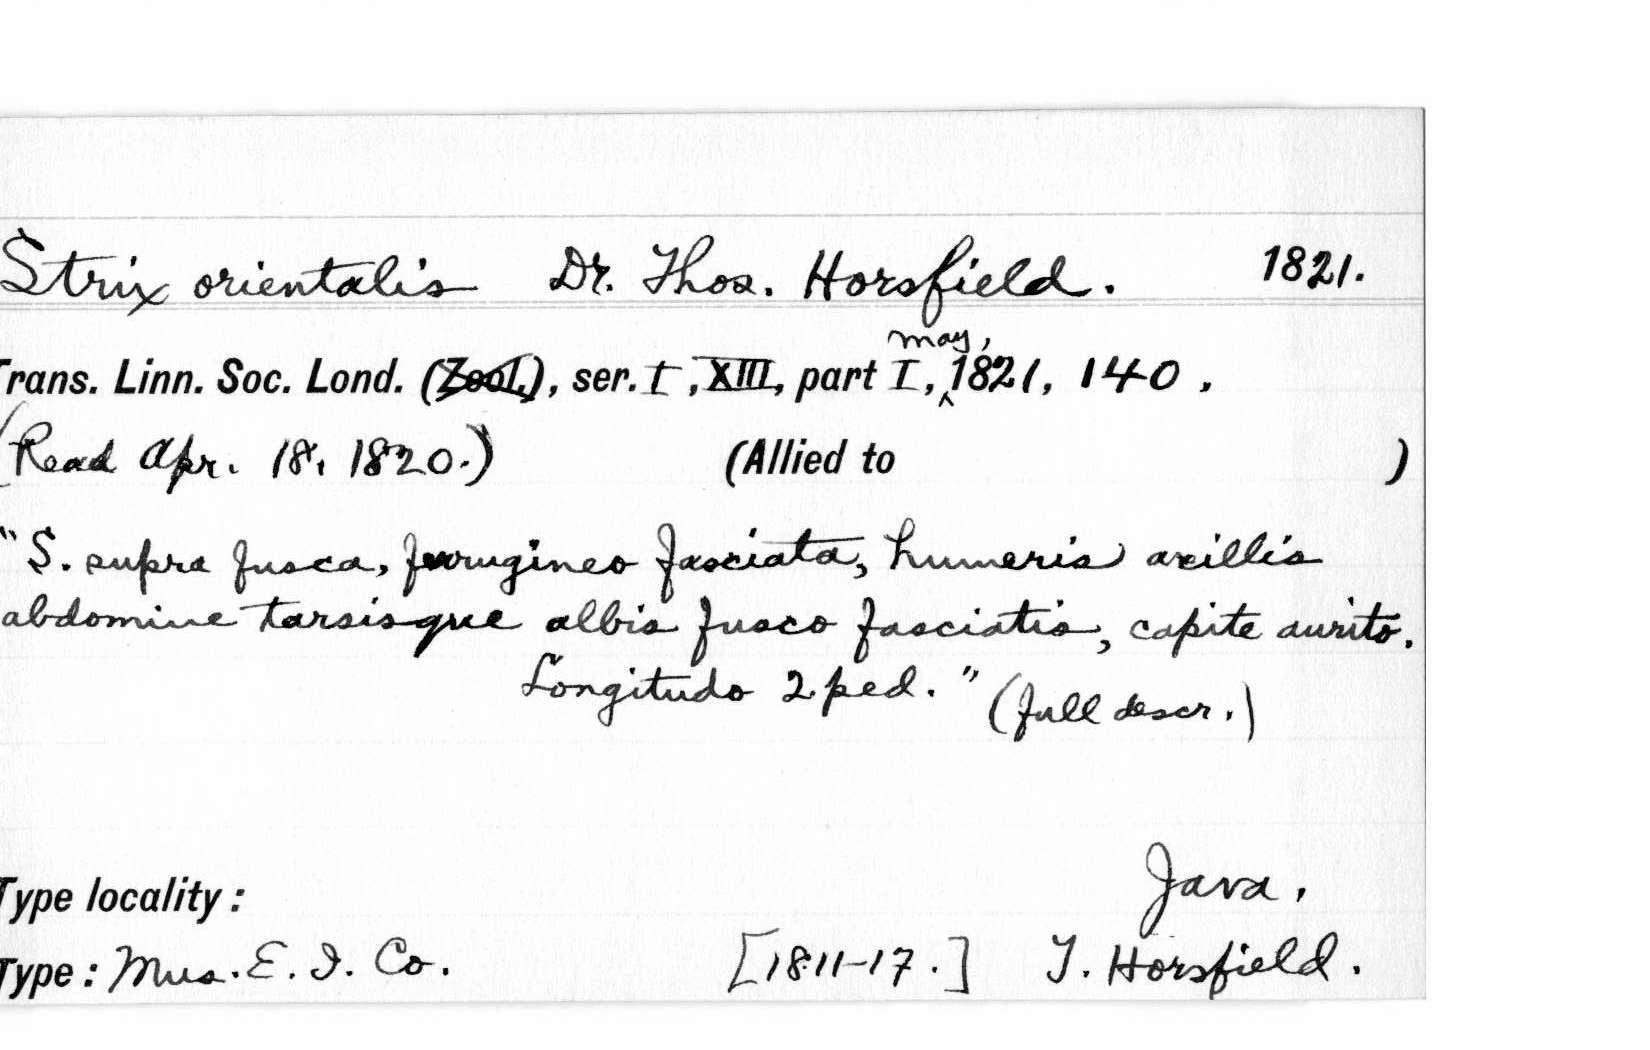 Strix orientalis Dr. Thos. Horsfield. 1821.
Trans. Linn. Soc. Lond. (Zool.), ser. I, XIII, part I, May, 1821, 140.
(Read Apr. 18, 1820.) (Allied to )
"S. supra fusca, ferrugineo fasciata, humeris axillis
abdomine tarsisque albis fusco fasciatis, capite aurito.
Longitudo 2 ped." (full descr.)
Type locality: Java.
Type: Mus. E. I. Co. [1811-17.] T. Horsfield.